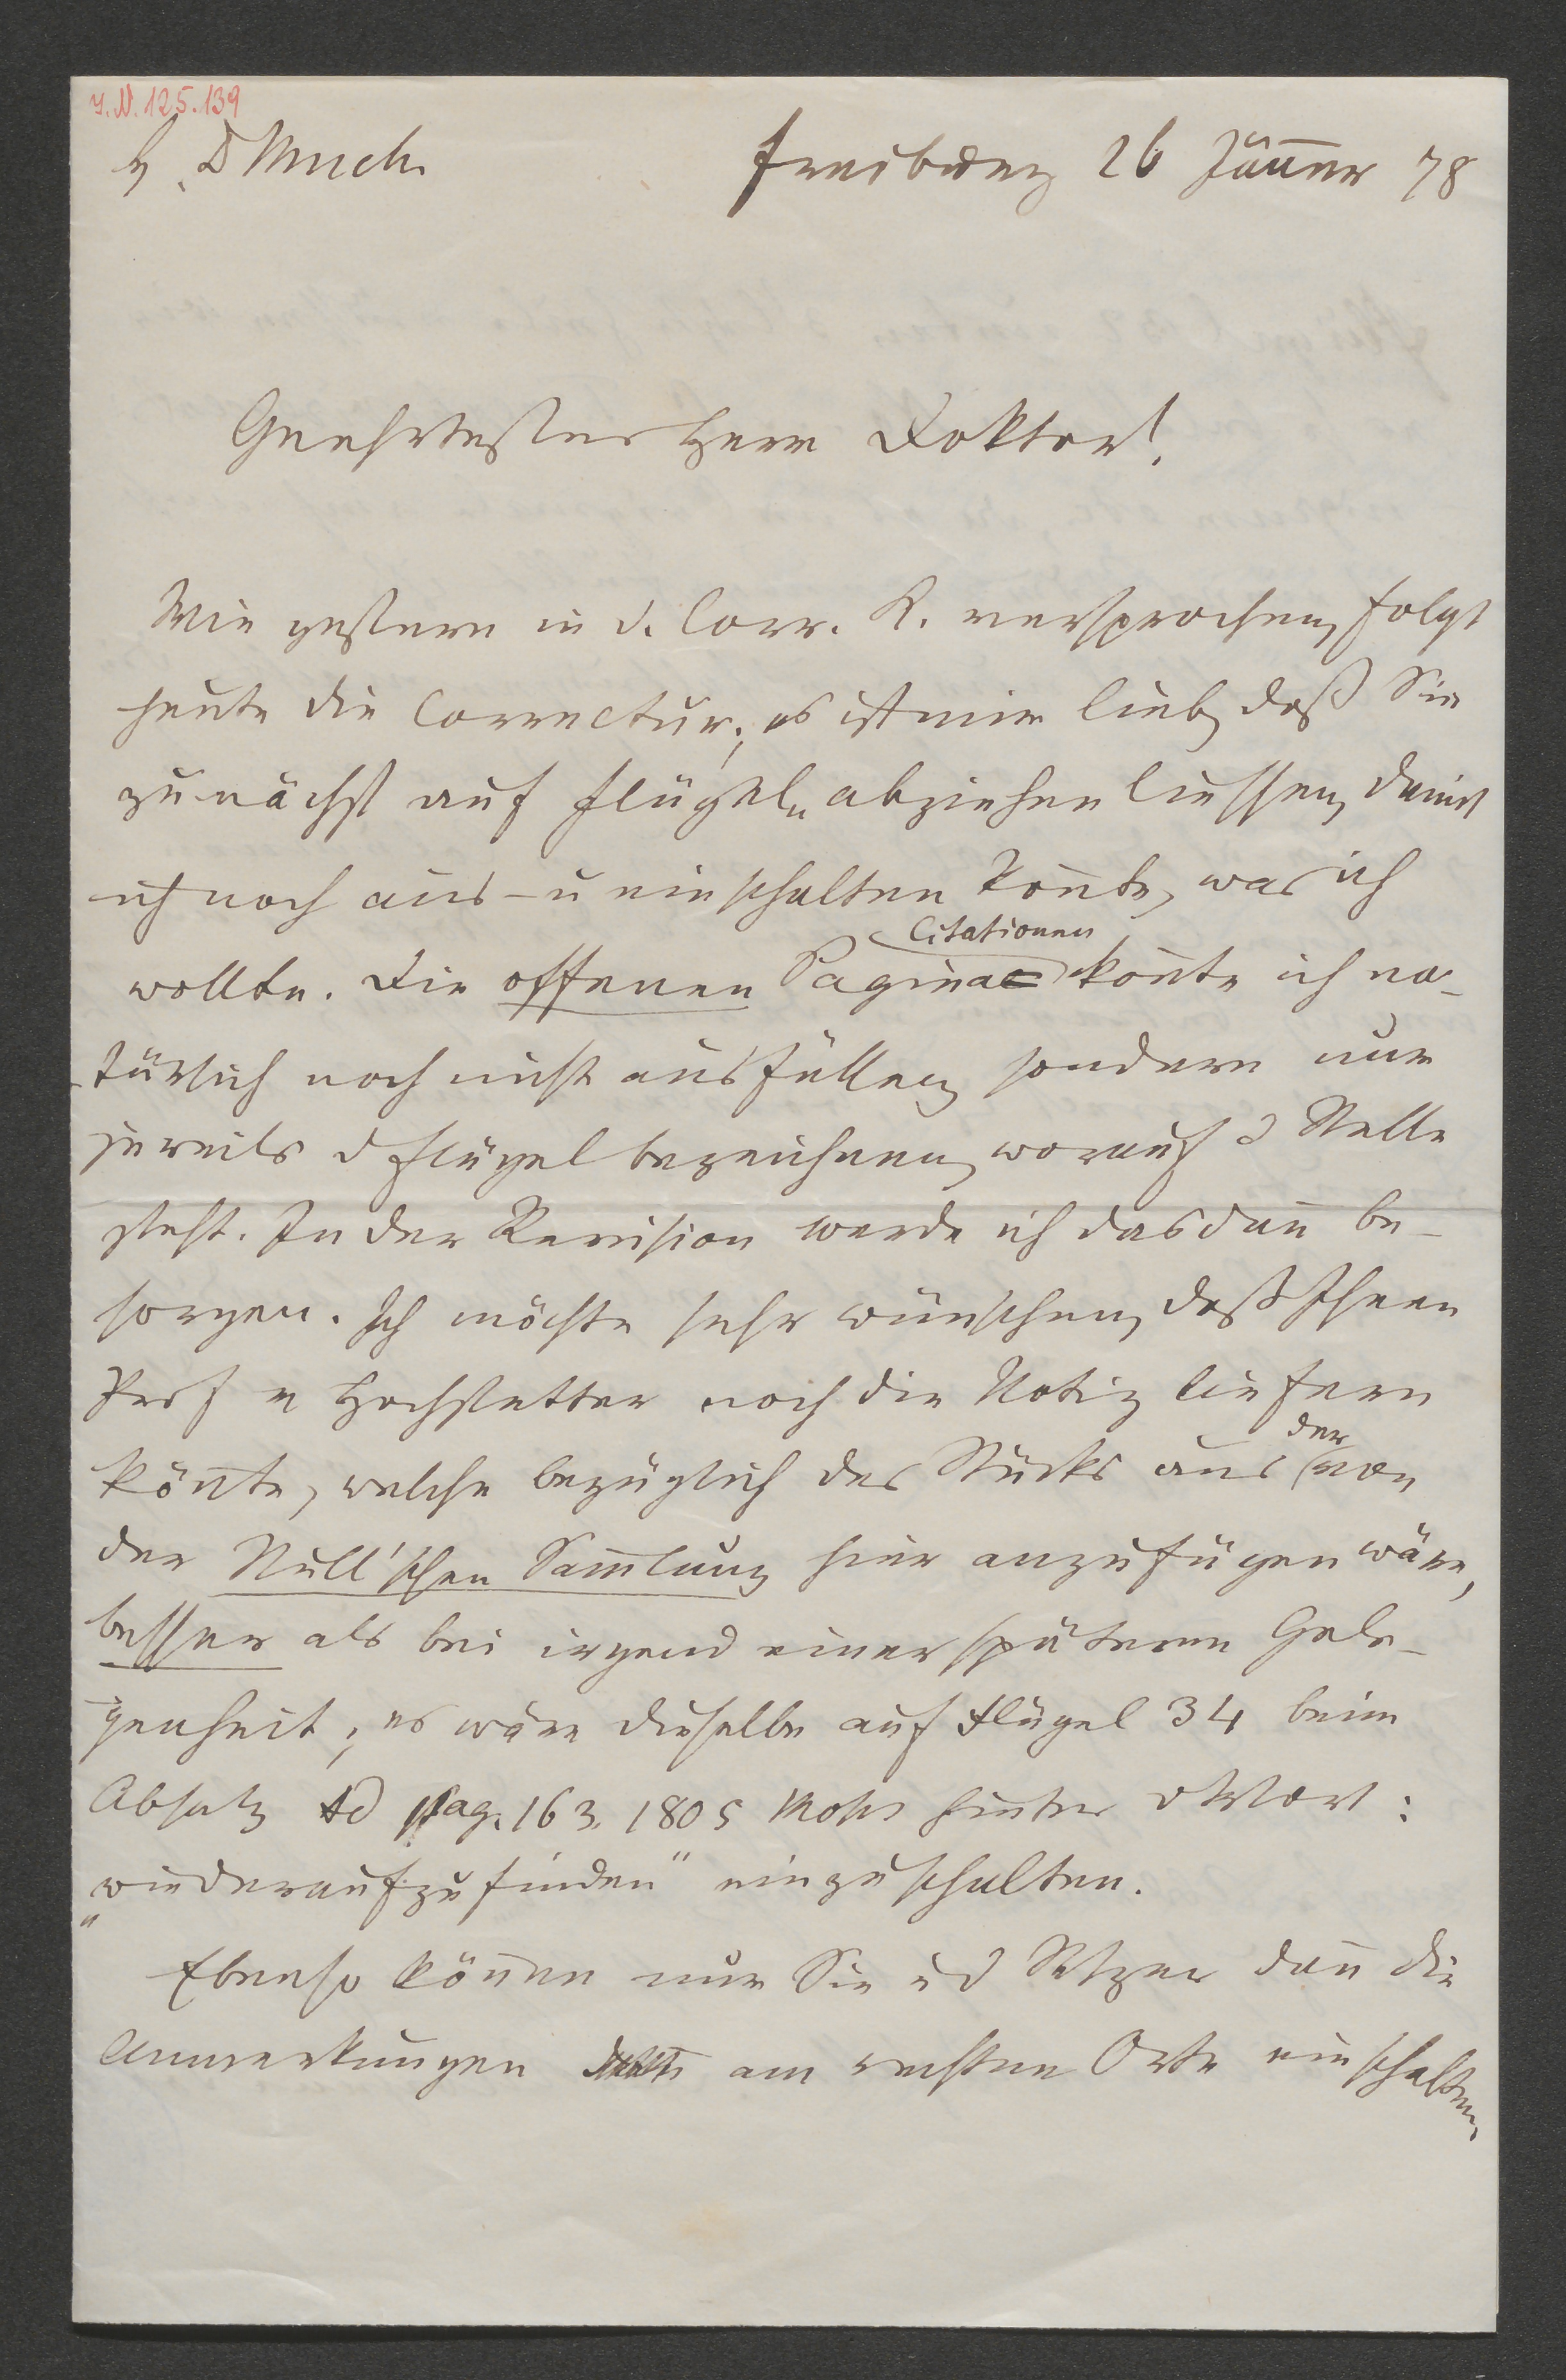 I. N. 125.139
H. D Much
Freiburg 26 Jänner 78
Geehrtester Herr Doktor!
Wie gestern in d. Corr. K. versprochen, folgt
heute die Correctur; es ist mir lieb, daß Sie
zunächst auf Flügeln abziehen liessen, damit
ich noch aus- u einschalten kon̄te, was ich
wollte. Die offenen Pagina Citationen kon̄te ich na-
türlich noch nicht ausfüllen, sondern nur
jeweils d Flügel bezeichnen, worauf d Stelle
steht. In der Revision werde ich das dan̄ be-
sorgen. Ich möchte sehr wünschen, daß Ihnen
Prof v Hochstetter noch die Notiz liefern
kön̄te, welche bezüglich des Stücks aus der von
der Null'schen Sam̄lung hier anzufügen wäre,
besser als bei irgend einer späteren Gele-
genheit; es wäre dieselbe auf Flügel 34 beim
Absatz Ad pag. 163. 1805 Mohs hinter d Wort:
„wiederaufzufinden" einzuschalten.
Ebenso kön̄en nur Sie u d Setzer dan̄ die
Anmerkungen am rechten Orte einschalten,